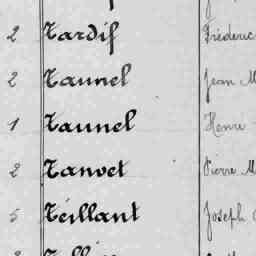 2 Tardif Fréderic
2 Taunel Jean M
1 Taunel Henri
2 Tanvet Pierre M
5 Teillant Joseph